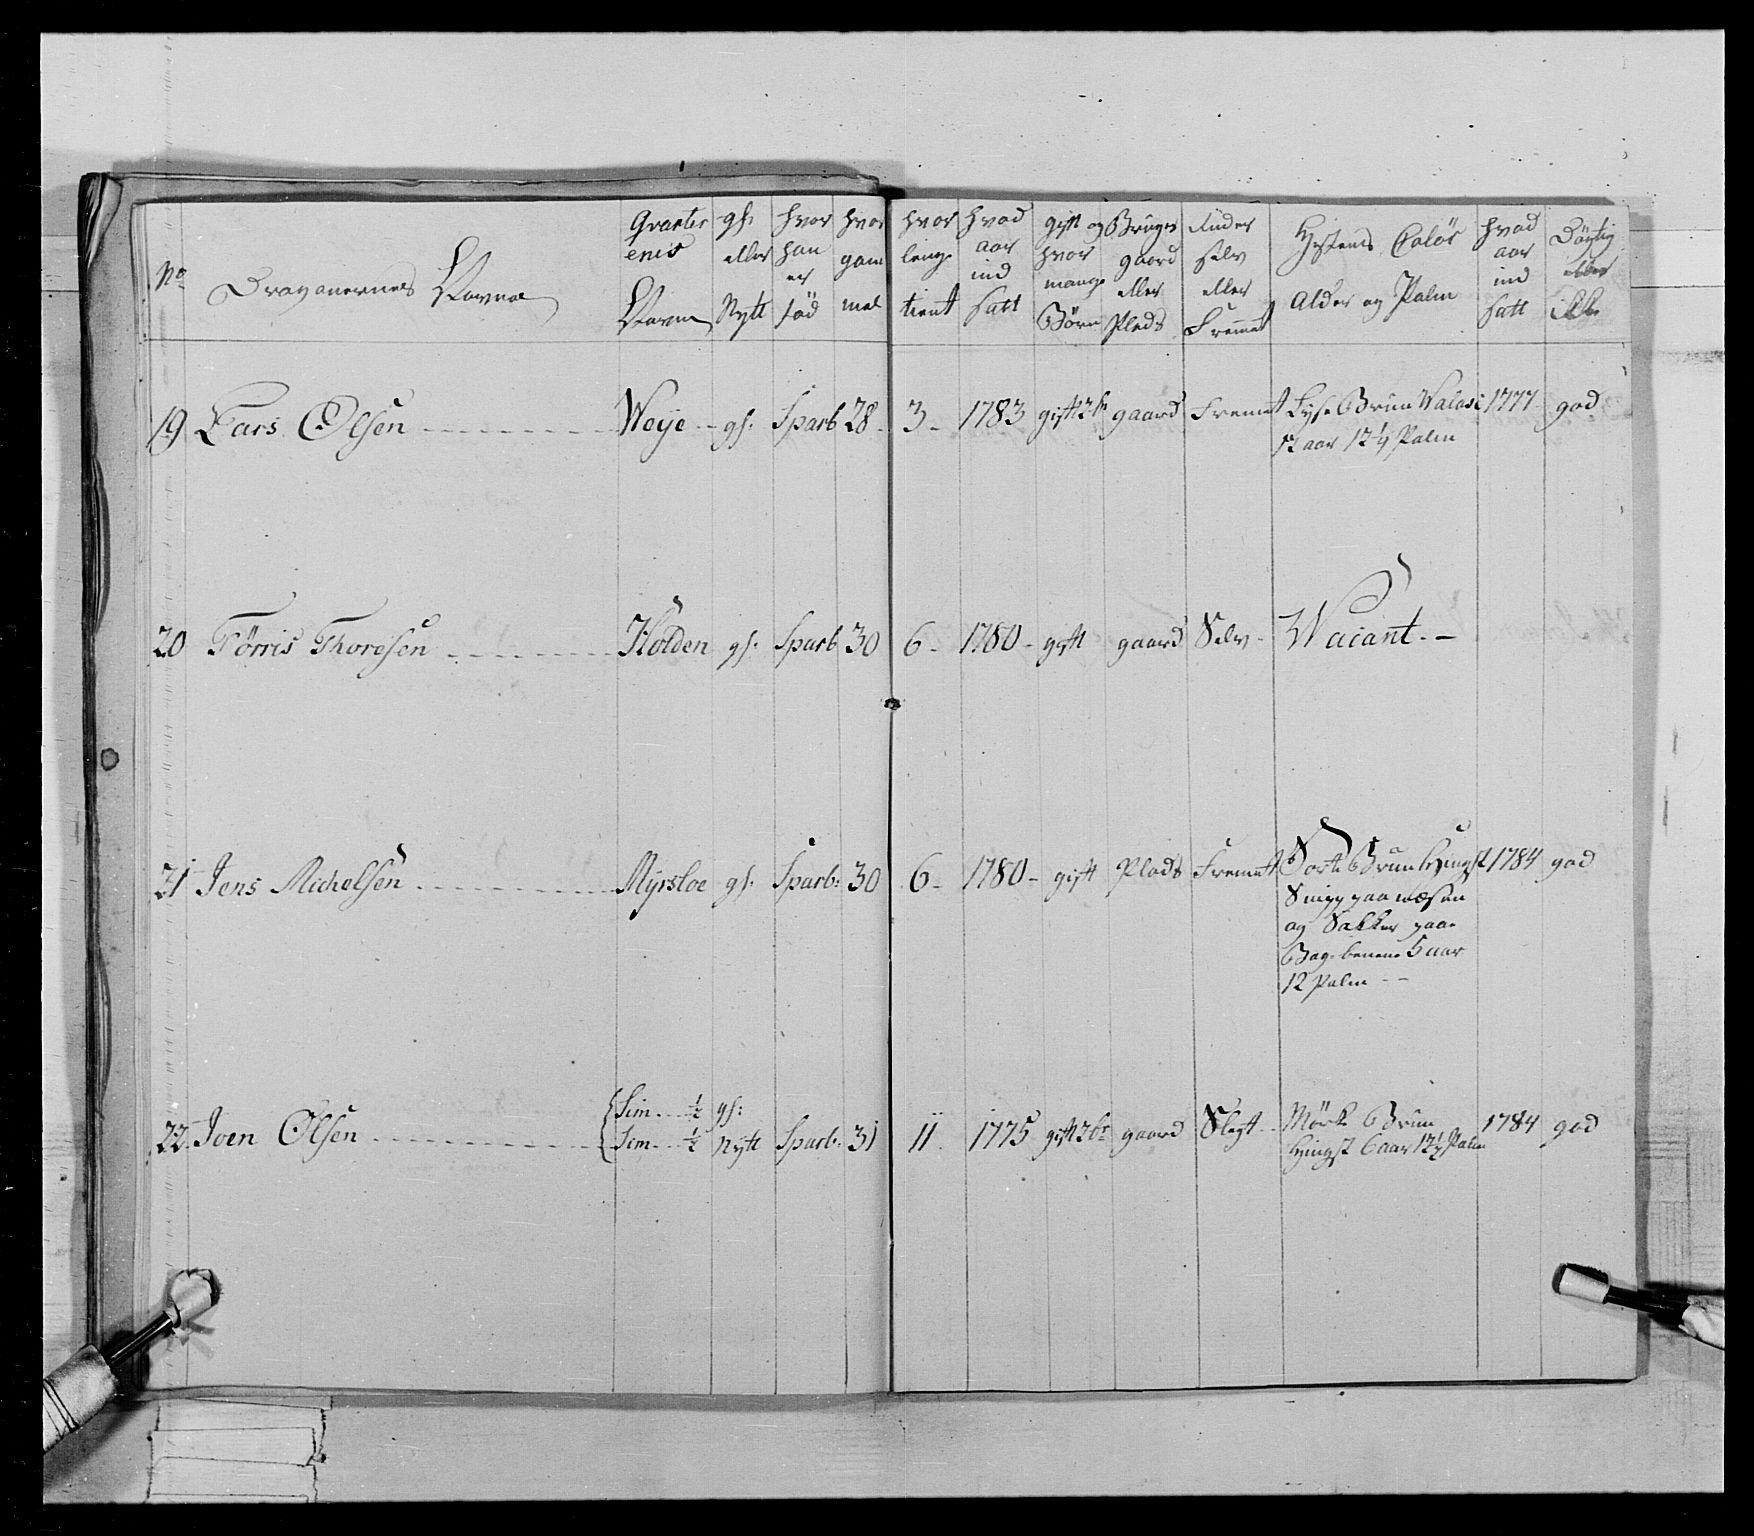 No
Dragonernes Navne
Qvarterenes Navne
gl: eller Nytt
hvor han er fød
hvor gammel
hvor lenge tient
hvad aar indsatt
gift og hvor mange Børn
Bruger gaard eller Plads
Riider selv eller Fremmet
Hestens Coløt Alder og Palm
hvad aar indsatt
Døgtig eller ikke
19 Lars Olsen Weÿe gl: Sparb 28 3 1783 gift 2 bn gaard Fremet Lyse Brun Walack 1777 god
12 aar 12¼ Palm
20 Tørris Thoresen Holden gl: Sparb 30 6 1780 gift gaard Selv Wacant
21 Jens Michelsen Myrsloe gl: Sparb: 30 6 1780 gift Plads Fremet Sort Brun hingst 1784 god
Snipp paa næsen
og Sokker paa
Bag benene 5 aar
12 Palm
Sim ½ gl:
22 Joen Olsen Sem ½ Nytt Sparb: 31 11 1775 gift 2 br gaard Slegt Mørk Brun 1784 god
Hingst 6 aar 12½ Palm